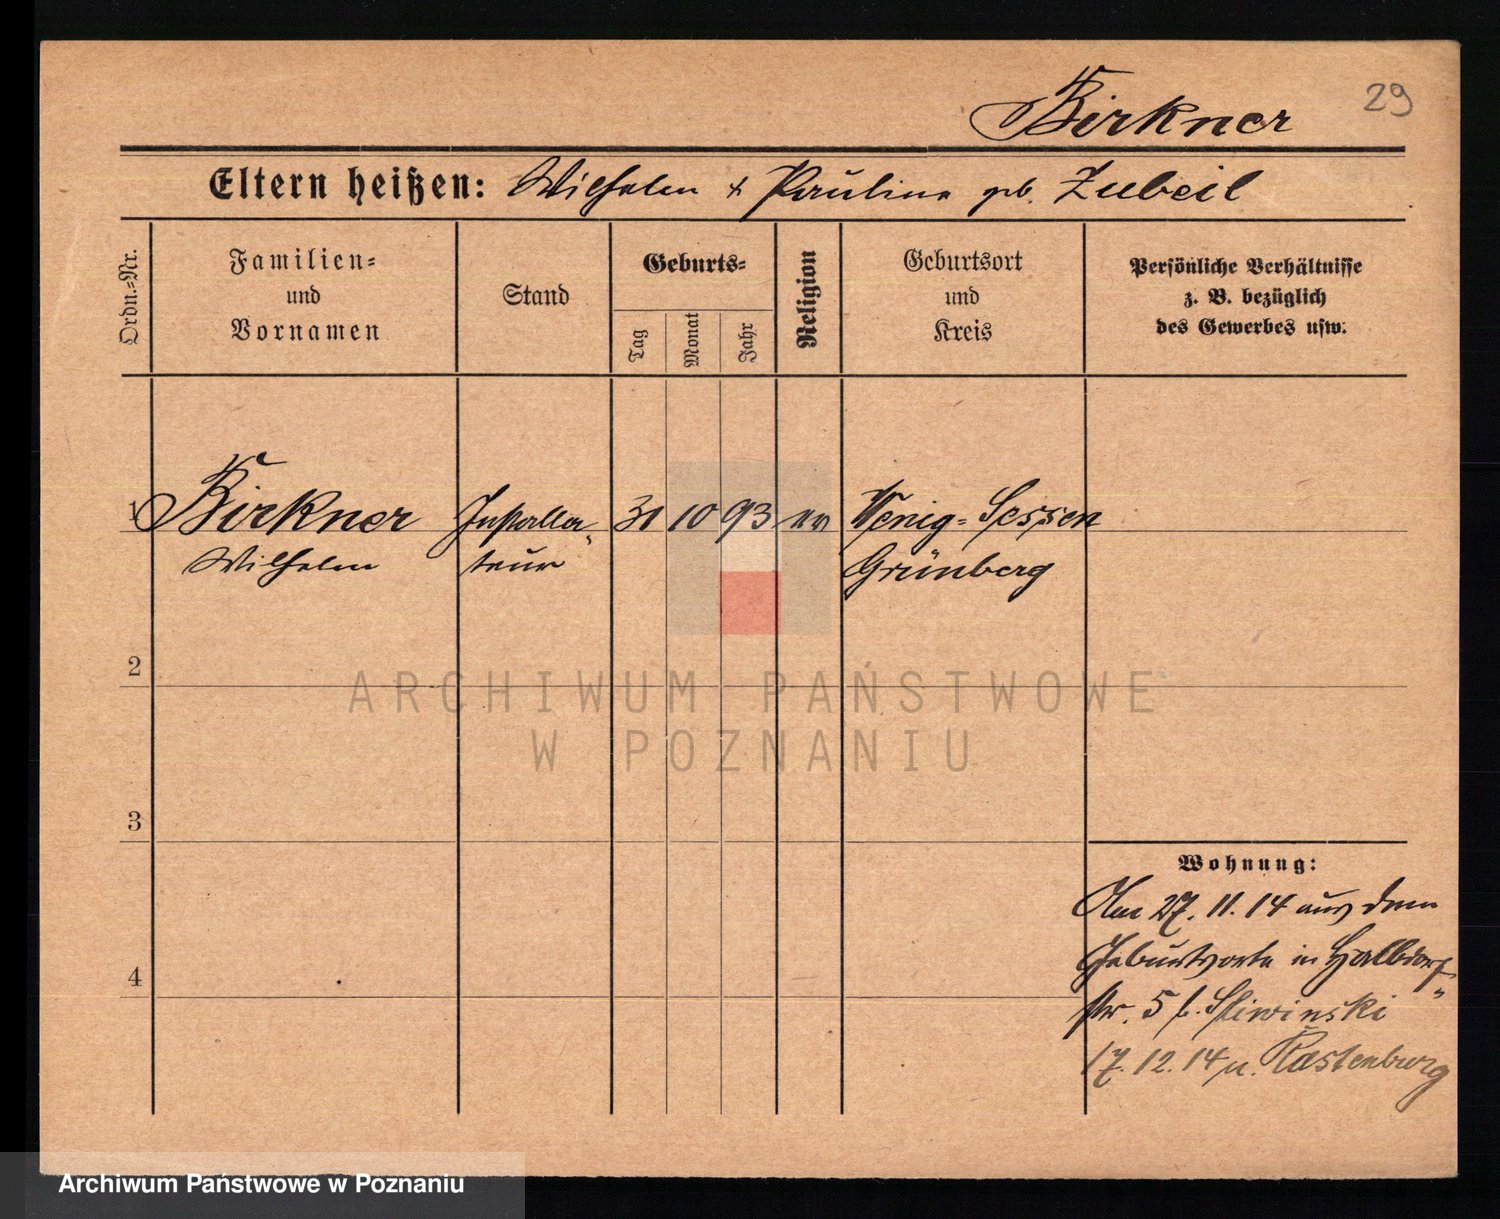 29
Birkner
Eltern heißen: Wilhelm & Pauline geb. Zubeil
Ordn.-Nr.
Familien-
und
Vornamen
Stand
Geburts-
Tag
Monat
Jahr
Religion
Geburtsort
und
Kreis
Persönliche Verhältnisse
z. B. bezüglich
des Gewerbes usw.
1 Birkner Installa- 31 10 93 ev Wenig-Sessen
Wilhelm teur Grünberg
2
ARCHIWUM PAŃSTWOWE
W POZNANIU
3
Wohnung:
Am 27.11.14 aus dem
Geburtsorte in Halbdorf-
str. 5 b. Sliwinski
4
17.12.14 n. Rastenburg
Archiwum Państwowe w Poznaniu